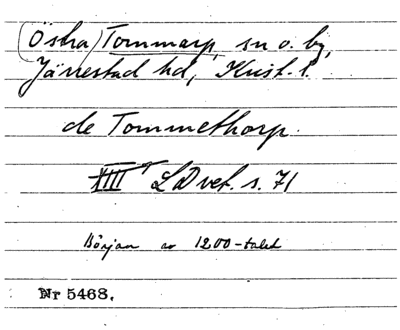 (Östra) Tommarp, sn o. by,
Järrestad hd, Krist. l.
de Tommethorp.
XIII LDvet. s. 71
Början av 1200-talet
Nr 5468.